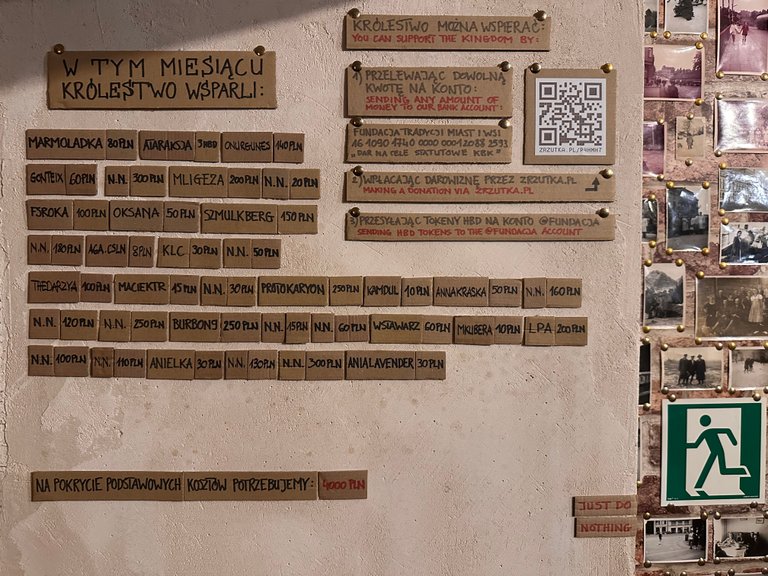 W TYM MIESIĄCU
KRÓLESTWO WSPARLI:
MARMOLADKA 80 PLN ATARAKSJA 3 HBD ONURGUNES 140 PLN
GONTEIX 60 PLN N.N. 300 PLN MLIGEZA 200 PLN N.N. 20 PLN
FSROKA 100 PLN OKSANA 50 PLN SZMULKBERG 150 PLN
N.N. 180 PLN AGA.CSLN 8 PLN KLC 30 PLN N.N. 50 PLN
THEDARZYA 100 PLN MACIEKTR 15 PLN N.N. 30 PLN PROTOKARYON 250 PLN KAMDUL 10 PLN ANNAKRASKA 50 PLN N.N. 160 PLN
N.N. 120 PLN N.N. 250 PLN BURBON9 250 PLN N.N. 15 PLN N.N. 60 PLN WSTAWARZ 60 PLN MKUBERA 10 PLN LPA 200 PLN
N.N. 100 PLN N.N. 110 PLN ANIELKA 30 PLN N.N. 130 PLN N.N. 300 PLN ANIALAVENDER 30 PLN
NA POKRYCIE PODSTAWOWYCH KOSZTÓW POTRZEBUJEMY: 4000 PLN
KRÓLESTWO MOŻNA WSPIERAĆ:
YOU CAN SUPPORT THE KINGDOM BY:
1) PRZELEWAJĄC DOWOLNĄ
KWOTĘ NA KONTO:
SENDING ANY AMOUNT OF
MONEY TO OUR BANK ACCOUNT:
FUNDACJA TRADYCJI MIAST I WSI
16 1090 1740 0000 0001 2088 2593
"DAR NA CELE STATUTOWE KBK"
ZRZUTKA.PL/P4HMH7
2) WPŁACAJĄC DAROWIZNĘ PRZEZ ZRZUTKA.PL
MAKING A DONATION VIA ZRZUTKA.PL
3) PRZESYŁAJĄC TOKENY HBD NA KONTO @FUNDACJA
SENDING HBD TOKENS TO THE @FUNDACJA ACCOUNT
JUST DO
NOTHING